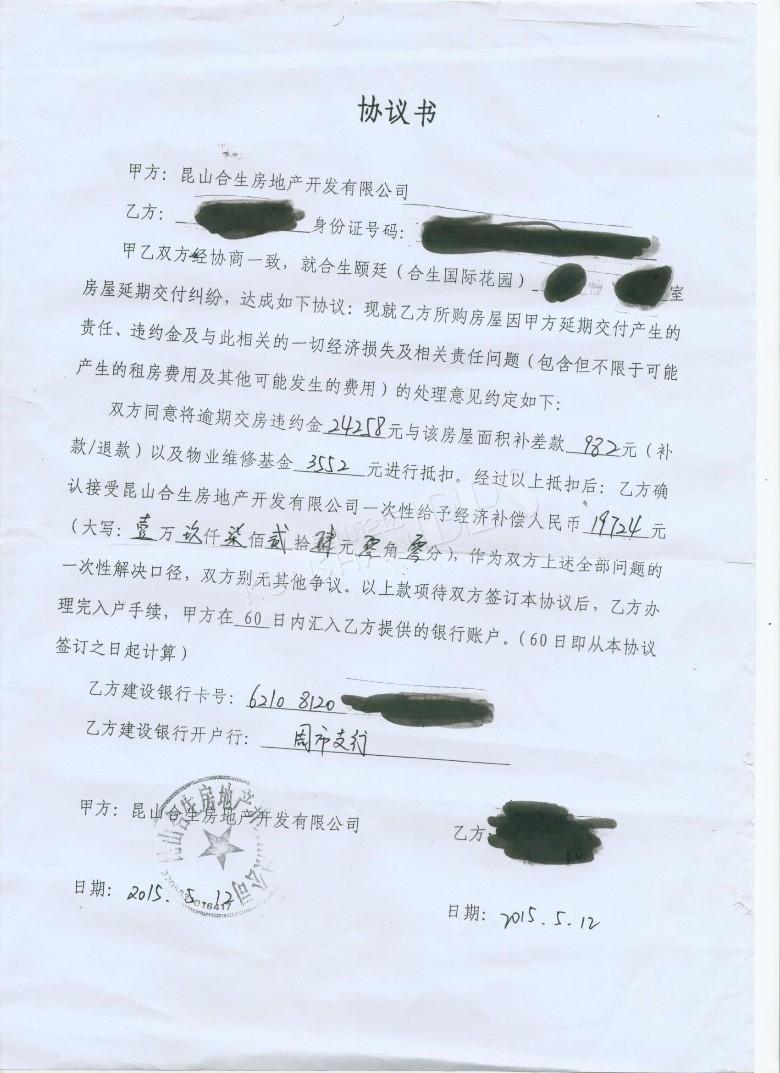 协议书
甲方：昆山合生房地产开发有限公司
乙方： 身份证号码：
甲乙双方经协商一致，就合生颐廷（合生国际花园） 室
房屋延期交付纠纷，达成如下协议：现就乙方所购房屋因甲方延期交付产生的
责任、违约金及与此相关的一切经济损失及相关责任问题（包含但不限于可能
产生的租房费用及其他可能发生的费用）的处理意见约定如下：
双方同意将逾期交房违约金 24258 元与该房屋面积补差款 982 元（补
款/退款）以及物业维修基金 3552 元进行抵扣。经过以上抵扣后：乙方确
认接受昆山合生房地产开发有限公司一次性给予经济补偿人民币 19724 元
（大写：壹万玖仟柒佰贰拾肆元零角零分），作为双方上述全部问题的
一次性解决口径，双方别无其他争议。以上款项待双方签订本协议后，乙方办
理完入户手续，甲方在 60 日内汇入乙方提供的银行账户。（60 日即从本协议
签订之日起计算）
乙方建设银行卡号：6210 8120
乙方建设银行开户行：周市支行
甲方：昆山合生房地产开发有限公司
乙方
日期：2015.5.12
日期：2015.5.12